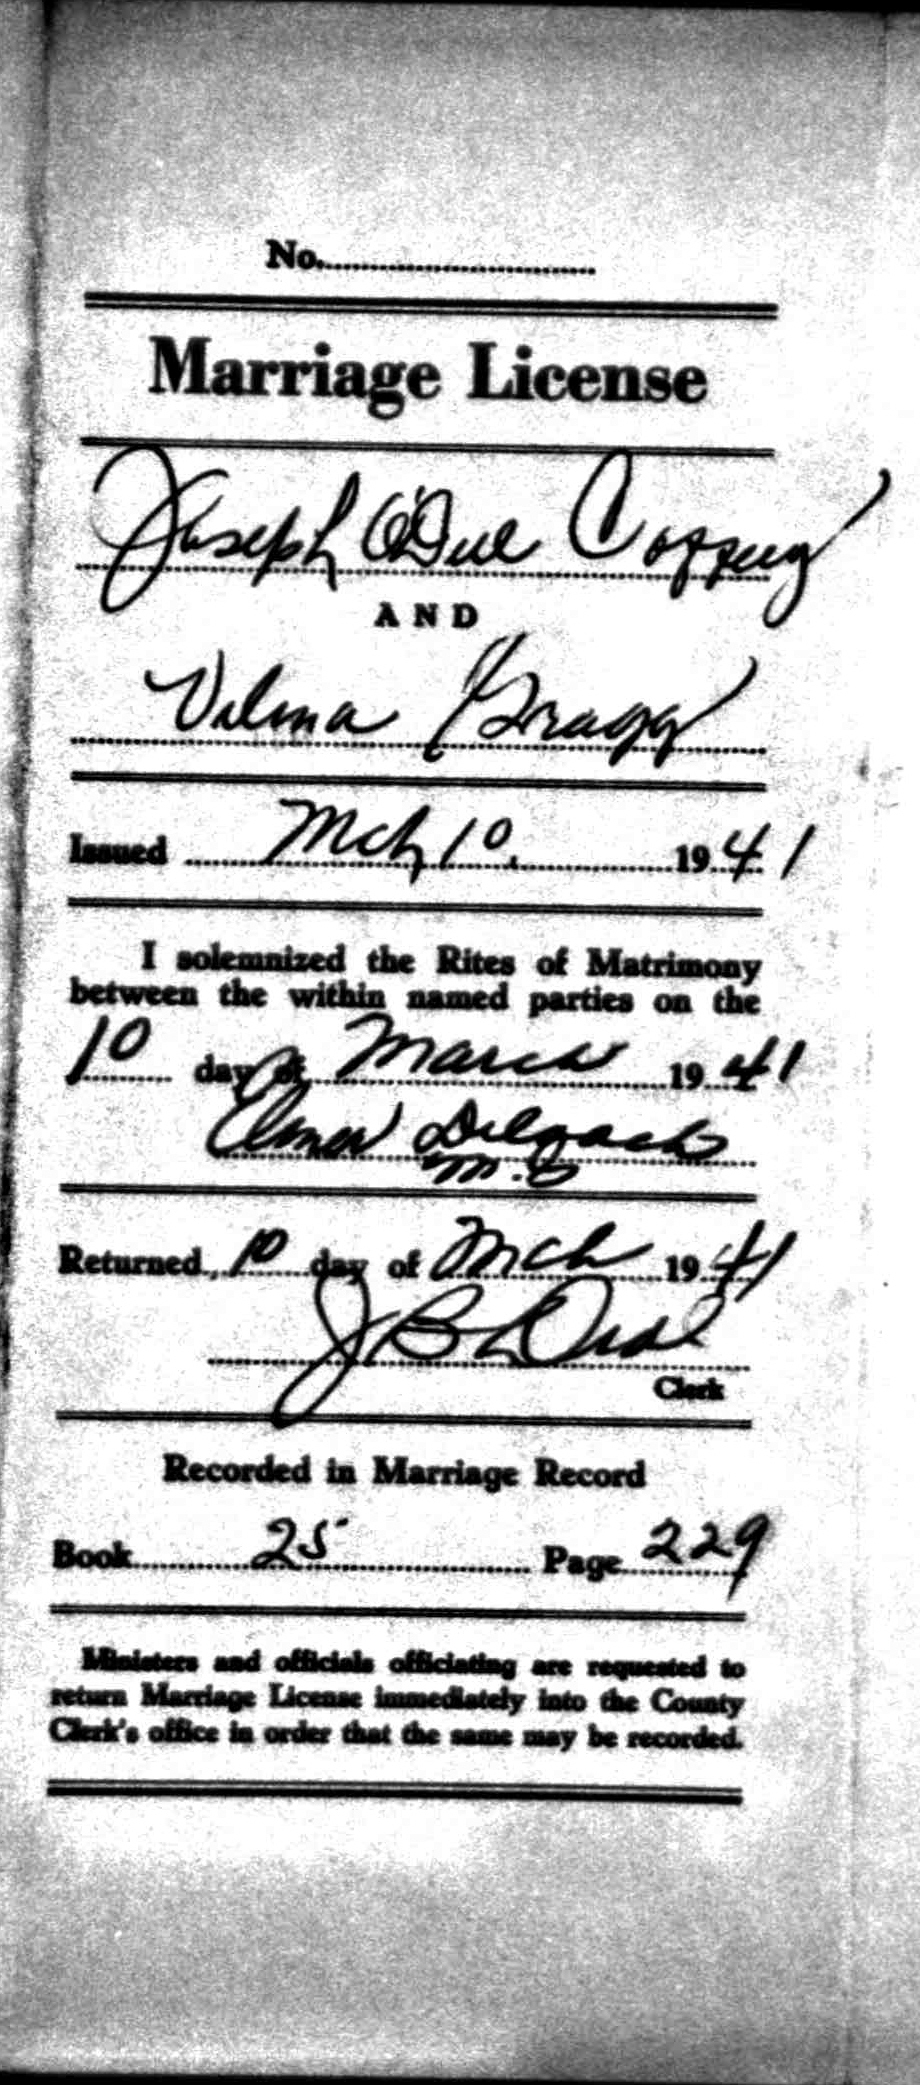 No.
Marriage License
Joseph O'Dul Coffey
AND
Velma Gragg
Issued Mch 10. 1941
I solemnized the Rites of Matrimony
between the within named parties on the
10 day of March 1941
Elmer
Returned 10 day of Mch 1941
J B
Clerk
Recorded in Marriage Record
Book 25 Page 229
Ministers and officials officiating are requested to
return Marriage License immediately into the County
Clerk's office in order that the same may be recorded.